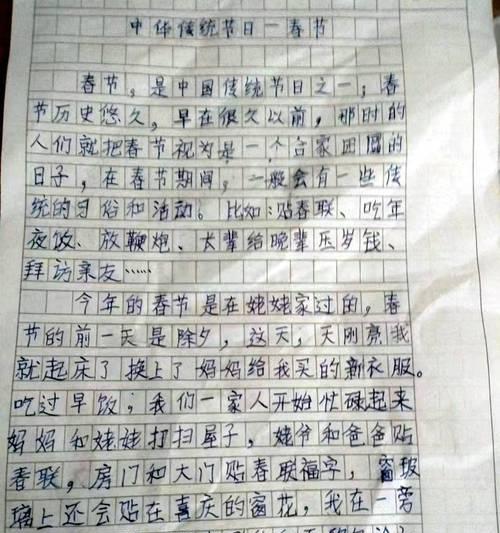 中华传统节日一春节
春节，是中国传统节日之一，春
节历史悠久，早在很久以前，那时的
人们就把春节视为是一个合家团圆的
日子，在春节期间，一般会有一些传
统的习俗和活动。比如：贴春联、吃年
夜饭、放鞭炮、大辈给晚辈压岁钱、
拜访亲友……
今年的春节是在姥姥家过的，春
节的前一天是除夕，这天，天刚亮我
就起床了换上了妈妈给我买的新衣服。
吃过早饭；我们一家人开始忙碌起来
妈妈和姥姥打扫屋子，姥爷和爸爸贴
春联，房门和大门贴春联福字，窗玻
璃上还会贴在喜庆的窗花，我在一旁